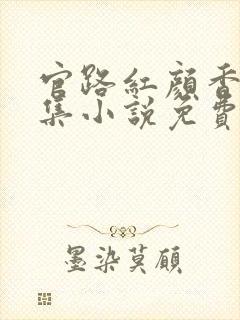 官路紅顏香
集小說免費
墨染莫顧